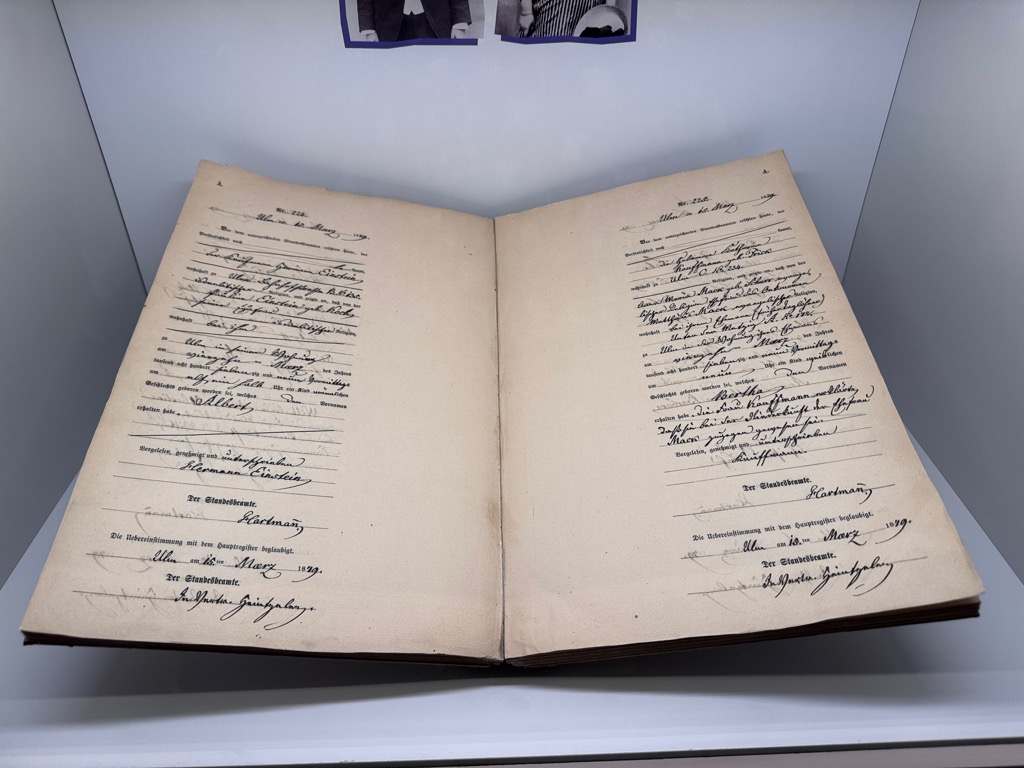 A.
Nr. 224.
Ulm, am 15. März 1879.
Vor dem unterzeichneten Standesbeamten erschien heute, der
Persönlichkeit nach
kannt,
der Kaufmann Hermann Einstein,
wohnhaft zu Ulm, Bahnhofstraße B. No. 135.
israelitischer Religion, und zeigte an, daß von der
Pauline Einstein geb. Koch, seiner
Ehefrau, israelitischer Religion,
wohnhaft bei ihm
zu Ulm in seiner Wohnung
am vierzehnten März des Jahres
tausend acht hundert siebenzig und neun Vormittags
um elf ein halb Uhr ein Kind männlichen
Geschlechts geboren worden sei, welches den Vornamen
Albert
erhalten habe.
Vorgelesen, genehmigt und unterschrieben
Hermann Einstein
Der Standesbeamte.
Hartmann
Die Uebereinstimmung mit dem Hauptregister beglaubigt.
Ulm am 15.ten Maerz 1879.
Der Standesbeamte.
In Vertr.
A.
Nr. 225.
Ulm, am 15. März 1879.
Vor dem unterzeichneten Standesbeamten erschien heute, der
Persönlichkeit nach
kannt,
die Hebamme
Kauffmann geb.
wohnhaft zu Ulm C. No. 234.
Religion, und zeigte an, daß von der
Mack geb.
Religion, Ehefrau des
Mack, Religion,
wohnhaft bei ihrem Ehemann
Unter der Metzig A. No.
zu Ulm in der Wohnung ihres Ehemannes
am vierzehnten März des Jahres
tausend acht hundert siebenzig und neun Vormittags
um neun Uhr ein Kind weiblichen
Geschlechts geboren worden sei, welches den Vornamen
Bertha
erhalten habe. Die Frau Kauffmann erklärte,
daß sie bei der Niederkunft der Ehefrau
Mack zugegen gewesen sei.
Vorgelesen, genehmigt und unterschrieben
Kauffmann.
Der Standesbeamte.
Hartmann
Die Uebereinstimmung mit dem Hauptregister beglaubigt.
Ulm am 15.ten Maerz 1879.
Der Standesbeamte.
In Vertr.